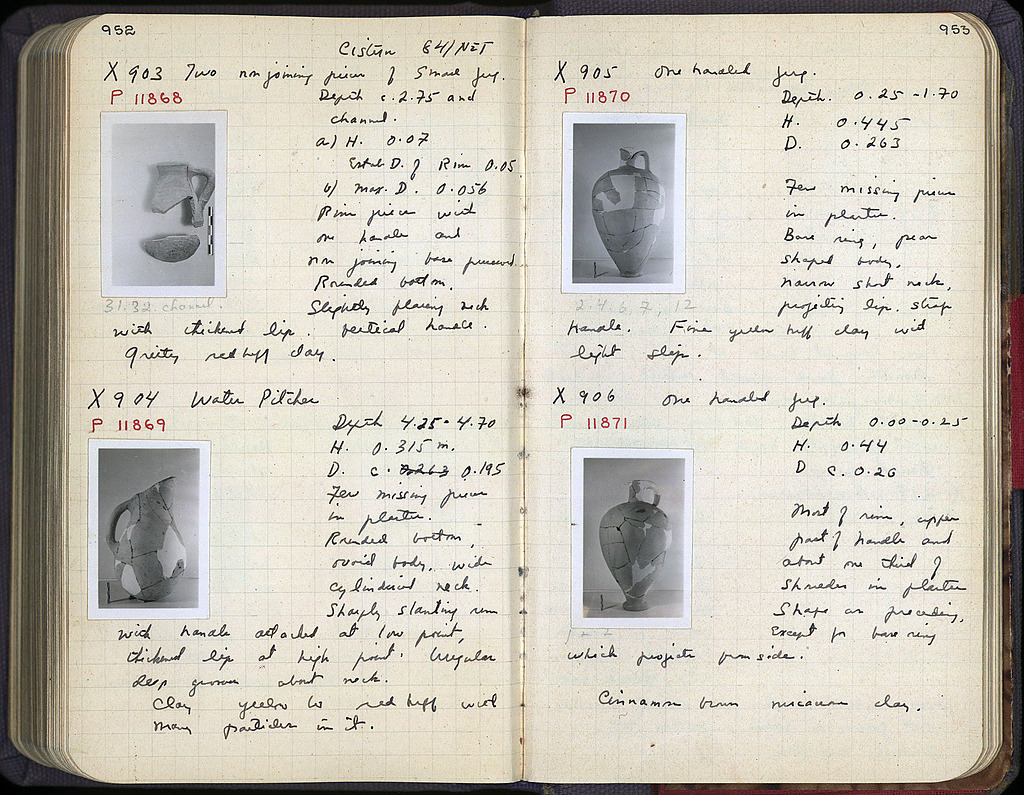 952
Cistern 64/ΝΣΤ
X 903 Two non joining pieces of Small jug.
P 11868
Depth c. 2.75 and
channel.
a) H. 0.07
Estab. D. of Rim 0.05
b) Max. D. 0.056
Rim piece with
one handle and
non joining base preserved.
Rounded bottom.
31.32. channel.
Slightly flaring neck
with thickened lip. Vertical handle.
Gritty red buff clay.
X 904 Water Pitcher
P 11869
Depth 4.25-4.70
H. 0.315 m.
D. c. 0.263 0.195
Few missing pieces
in plaster.
Rounded bottom,
ovoid body, wide
cylindrical neck.
Sharply slanting rim
with handle attached at low point,
thickened lip at high point. Irregular
deep grooves about neck.
Clay yellow to red buff with
many particles in it.
953
X 905 One handled jug.
P 11870
Depth. 0.25-1.70
H. 0.445
D. 0.263
Few missing pieces
in plaster.
Base ring, pear
shaped body,
narrow short neck,
2.4.6,7, 12
projecting lip. strap
handle. Fine yellow buff clay with
light slip.
X 906 One handled jug.
P 11871
Depth 0.00-0.25
H. 0.44
D c. 0.26
Most of rim, upper
part of handle and
about one third of
Shoulder in plaster
Shape as preceding,
Except for base ring
which projects from side.
Cinnamon brown micaceous clay.